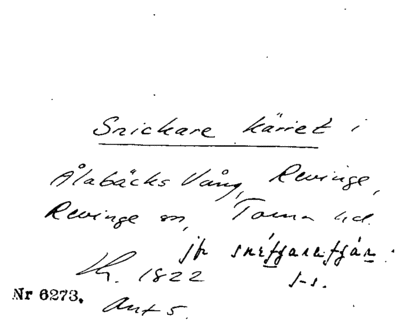 Snickare kärret i
Ålabäcks Vång, Revinge,
Revinge sn, Torna hd.
jfr
Lh. 1822 s-s.
Nr 6273. Avt 5.